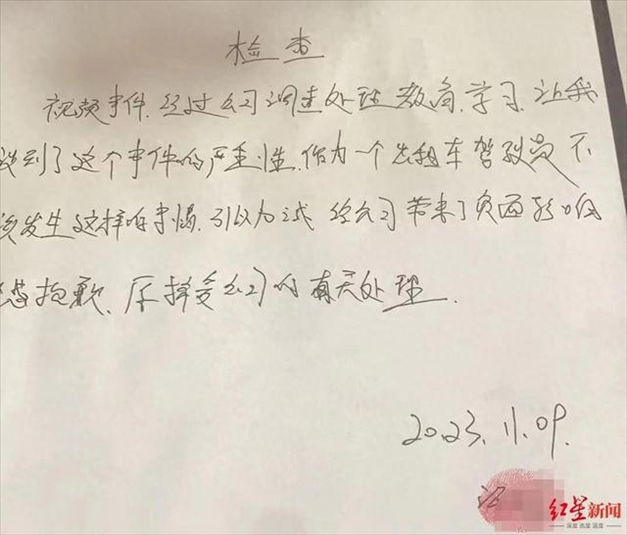 检查
视频事件,经过公司调查处理教育,学习,让我
识到了这个事件的严重性,作为一个出租车驾驶员不
该发生这样的事情,引以为戒 给公司带来了负面影响
抱歉,接受公司的有关处理.
2023.11.09.
红星新闻
深度 态度 温度